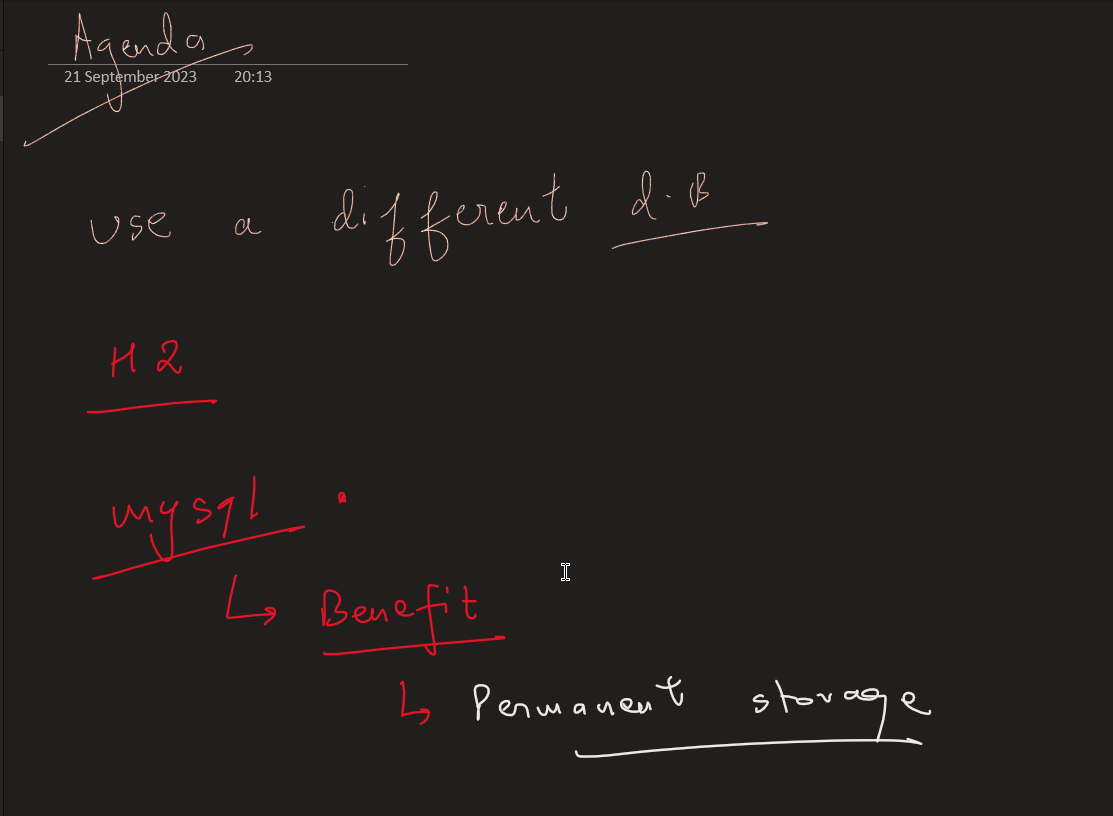 Agenda
21 September 2023 20:13
use a different d.B
H2
mysql
↳ Benefit
↳ Permanent storage